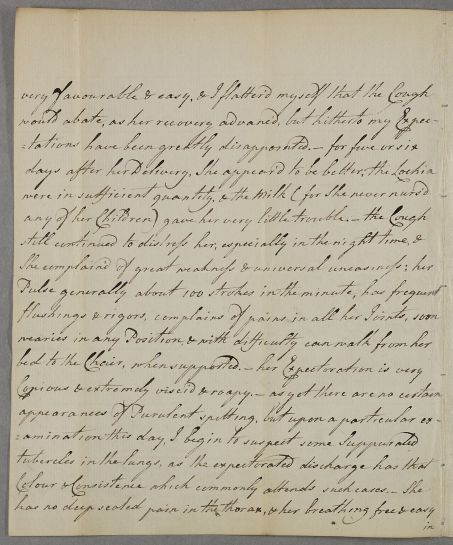 very favourable & easy, & I flatterd myself that the Cough
would abate, as her recovery advanced, but hitherto my Expec-
-tations have been greatly disappointed. – for five or six
days after her Delivery, She appeard to be better, the Lochia
were in sufficient quantity, & the Milk ( for She never nurs'd
any of her Children) gave her very little trouble. – the Cough
still continued to distress her, especially in the night time, &
She complain'd of great weakness & universal uneasiness; her
Pulse generally about 100 strokes in the minute, has frequent
flushings & rigors, complains of pains in all her Joints, soon
wearies in any Position, & with difficulty can walk from her
bed to the Chair, when supported. – her Expectoration is very
Copious & extremely viscid & roapy. – as yet there are no certain
appearances of Purulent spitting, but upon a particular ex-
-amination this day, I begin to suspect some Suppurated
tubercles in the lungs, as the expectorated discharge has that
Colour & Consistence which commonly attends such cases. – She
has no deep seated pain in the thorax, & her breathing free & easy
in